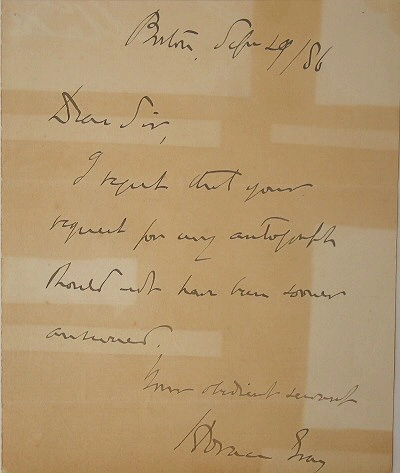 Boston, Sept 29/86
Dear Sir,
I regret that your
request for my autograph
should not have been sooner
answered.
Your obedient servant
Horace Gray